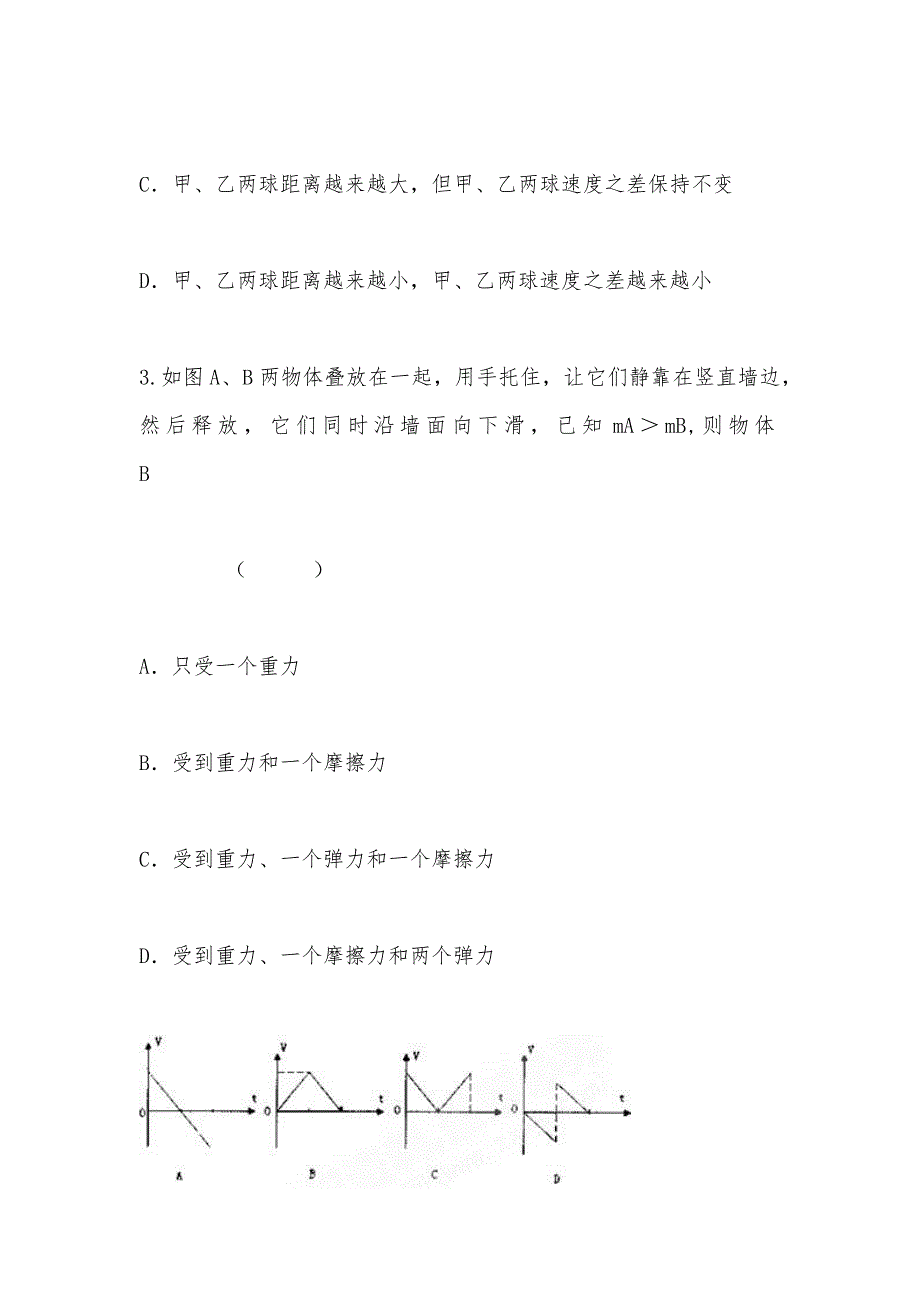 C．甲、乙两球距离越来越大，但甲、乙两球速度之差保持不变
D．甲、乙两球距离越来越小，甲、乙两球速度之差越来越小
3.如图A、B两物体叠放在一起，用手托住，让它们静靠在竖直墙边，
然后释放，它们同时沿墙面向下滑，已知mA＞mB,则物体
B
（ ）
A．只受一个重力
B．受到重力和一个摩擦力
C．受到重力、一个弹力和一个摩擦力
D．受到重力、一个摩擦力和两个弹力
V V V V
0 t 0 t 0 t 0 t
A B C D